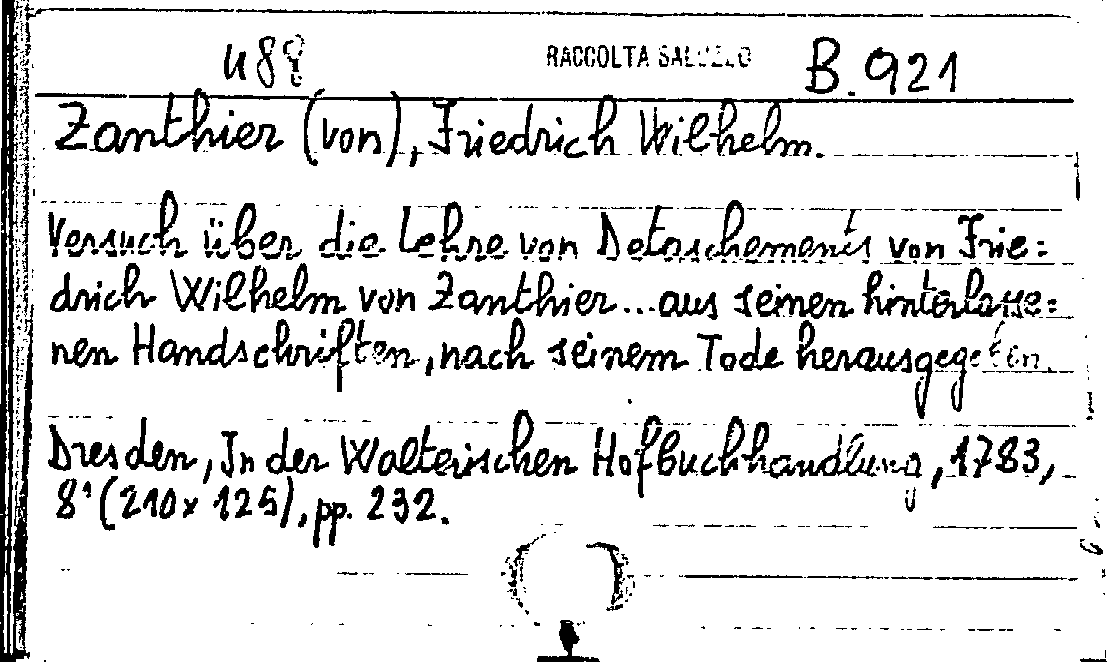 488 RACCOLTA SALUZZO B.921
Zanthier (von), Friedrich Wilhelm.
Versuch über die Lehre von Detaschements von Frie=
drich Wilhelm von Zanthier... aus seinen hinterlasse=
nen Handschriften, nach seinem Tode herausgegeben.
Dresden, In der Walterischen Hofbuchhandlung, 1783,
8° (210x125), pp. 232.